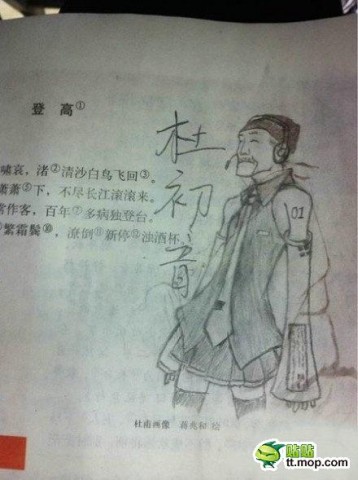 登 高①
啸哀，渚②清沙白鸟飞回③。
萧萧⑤下，不尽长江滚滚来。
常作客，百年⑦多病独登台。
繁霜鬓⑩，潦倒⑪新停⑫浊酒杯。
杜初音
01
杜甫画像 蒋兆和 绘
贴贴
tt.mop.com